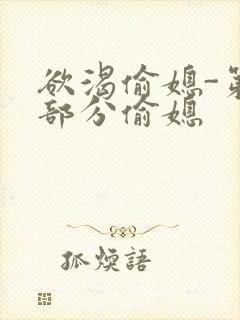 欲渴偷媳-第
部分偷媳
孤煙語